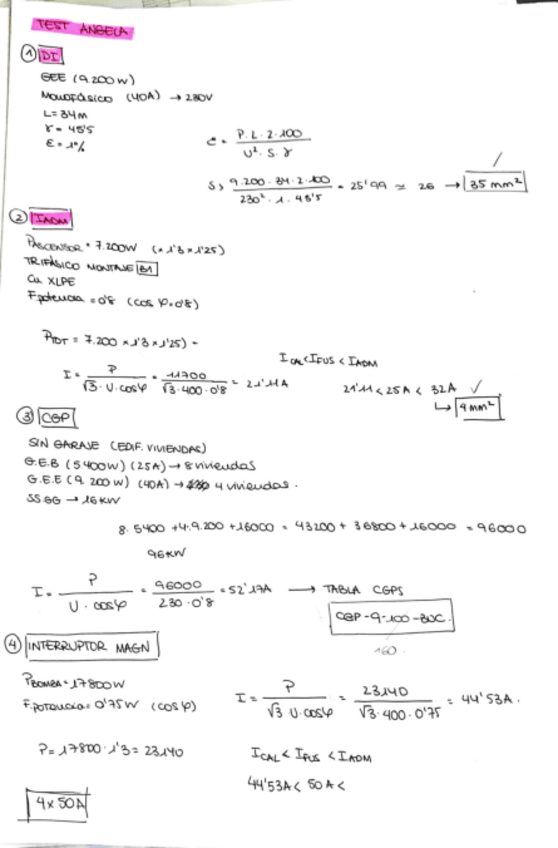 TEST ANGELA
① DI
GEE (9.200W)
MONOFÁSICO (40A) → 230V
L=34m
γ = 45'5
ε = 1%
e = P.L.2.100 / U².S.γ
S = 9.200.34.2.100 / 230².1.45'5 = 25'99 ≃ 26 → 35 mm²
② IADM
PASCENSOR = 7.200W (×1'3×1'25)
TRIFÁSICO MONTAJE B1
Cu XLPE
F.potencia = 0'8 (cos φ=0'8)
PTOT = 7.200 ×1'3×1'25) =
ICAL<IFUS < IADM
I = P / √3.U.cosφ = 11700 / √3.400.0'8 = 21'11A
21'11 < 25A < 32A ✓
↳ 4mm²
③ CGP
SIN GARAJE (EDIF. VIVIENDAS)
G.E.B (5400W) (25A) → 8 viviendas
G.E.E (9.200W) (40A) → 4 viviendas.
SSGG → 16KW
8.5400 +4.9.200 +16000 = 43200 + 36800 + 16000 = 96000
96KW
I = P / U.cosφ = 96000 / 230.0'8 = 52'17A → TABLA CGPS
CGP-9-100-BUC.
160.
④ INTERRUPTOR MAGN
PBOMBA = 17800W
F.POTENCIA = 0'75W (cosφ)
I = P / √3.U.cosφ = 23140 / √3.400.0'75 = 44'53A.
P= 17800.1'3 = 23140
ICAL < IFUS < IADM
44'53A < 50A <
4x50A